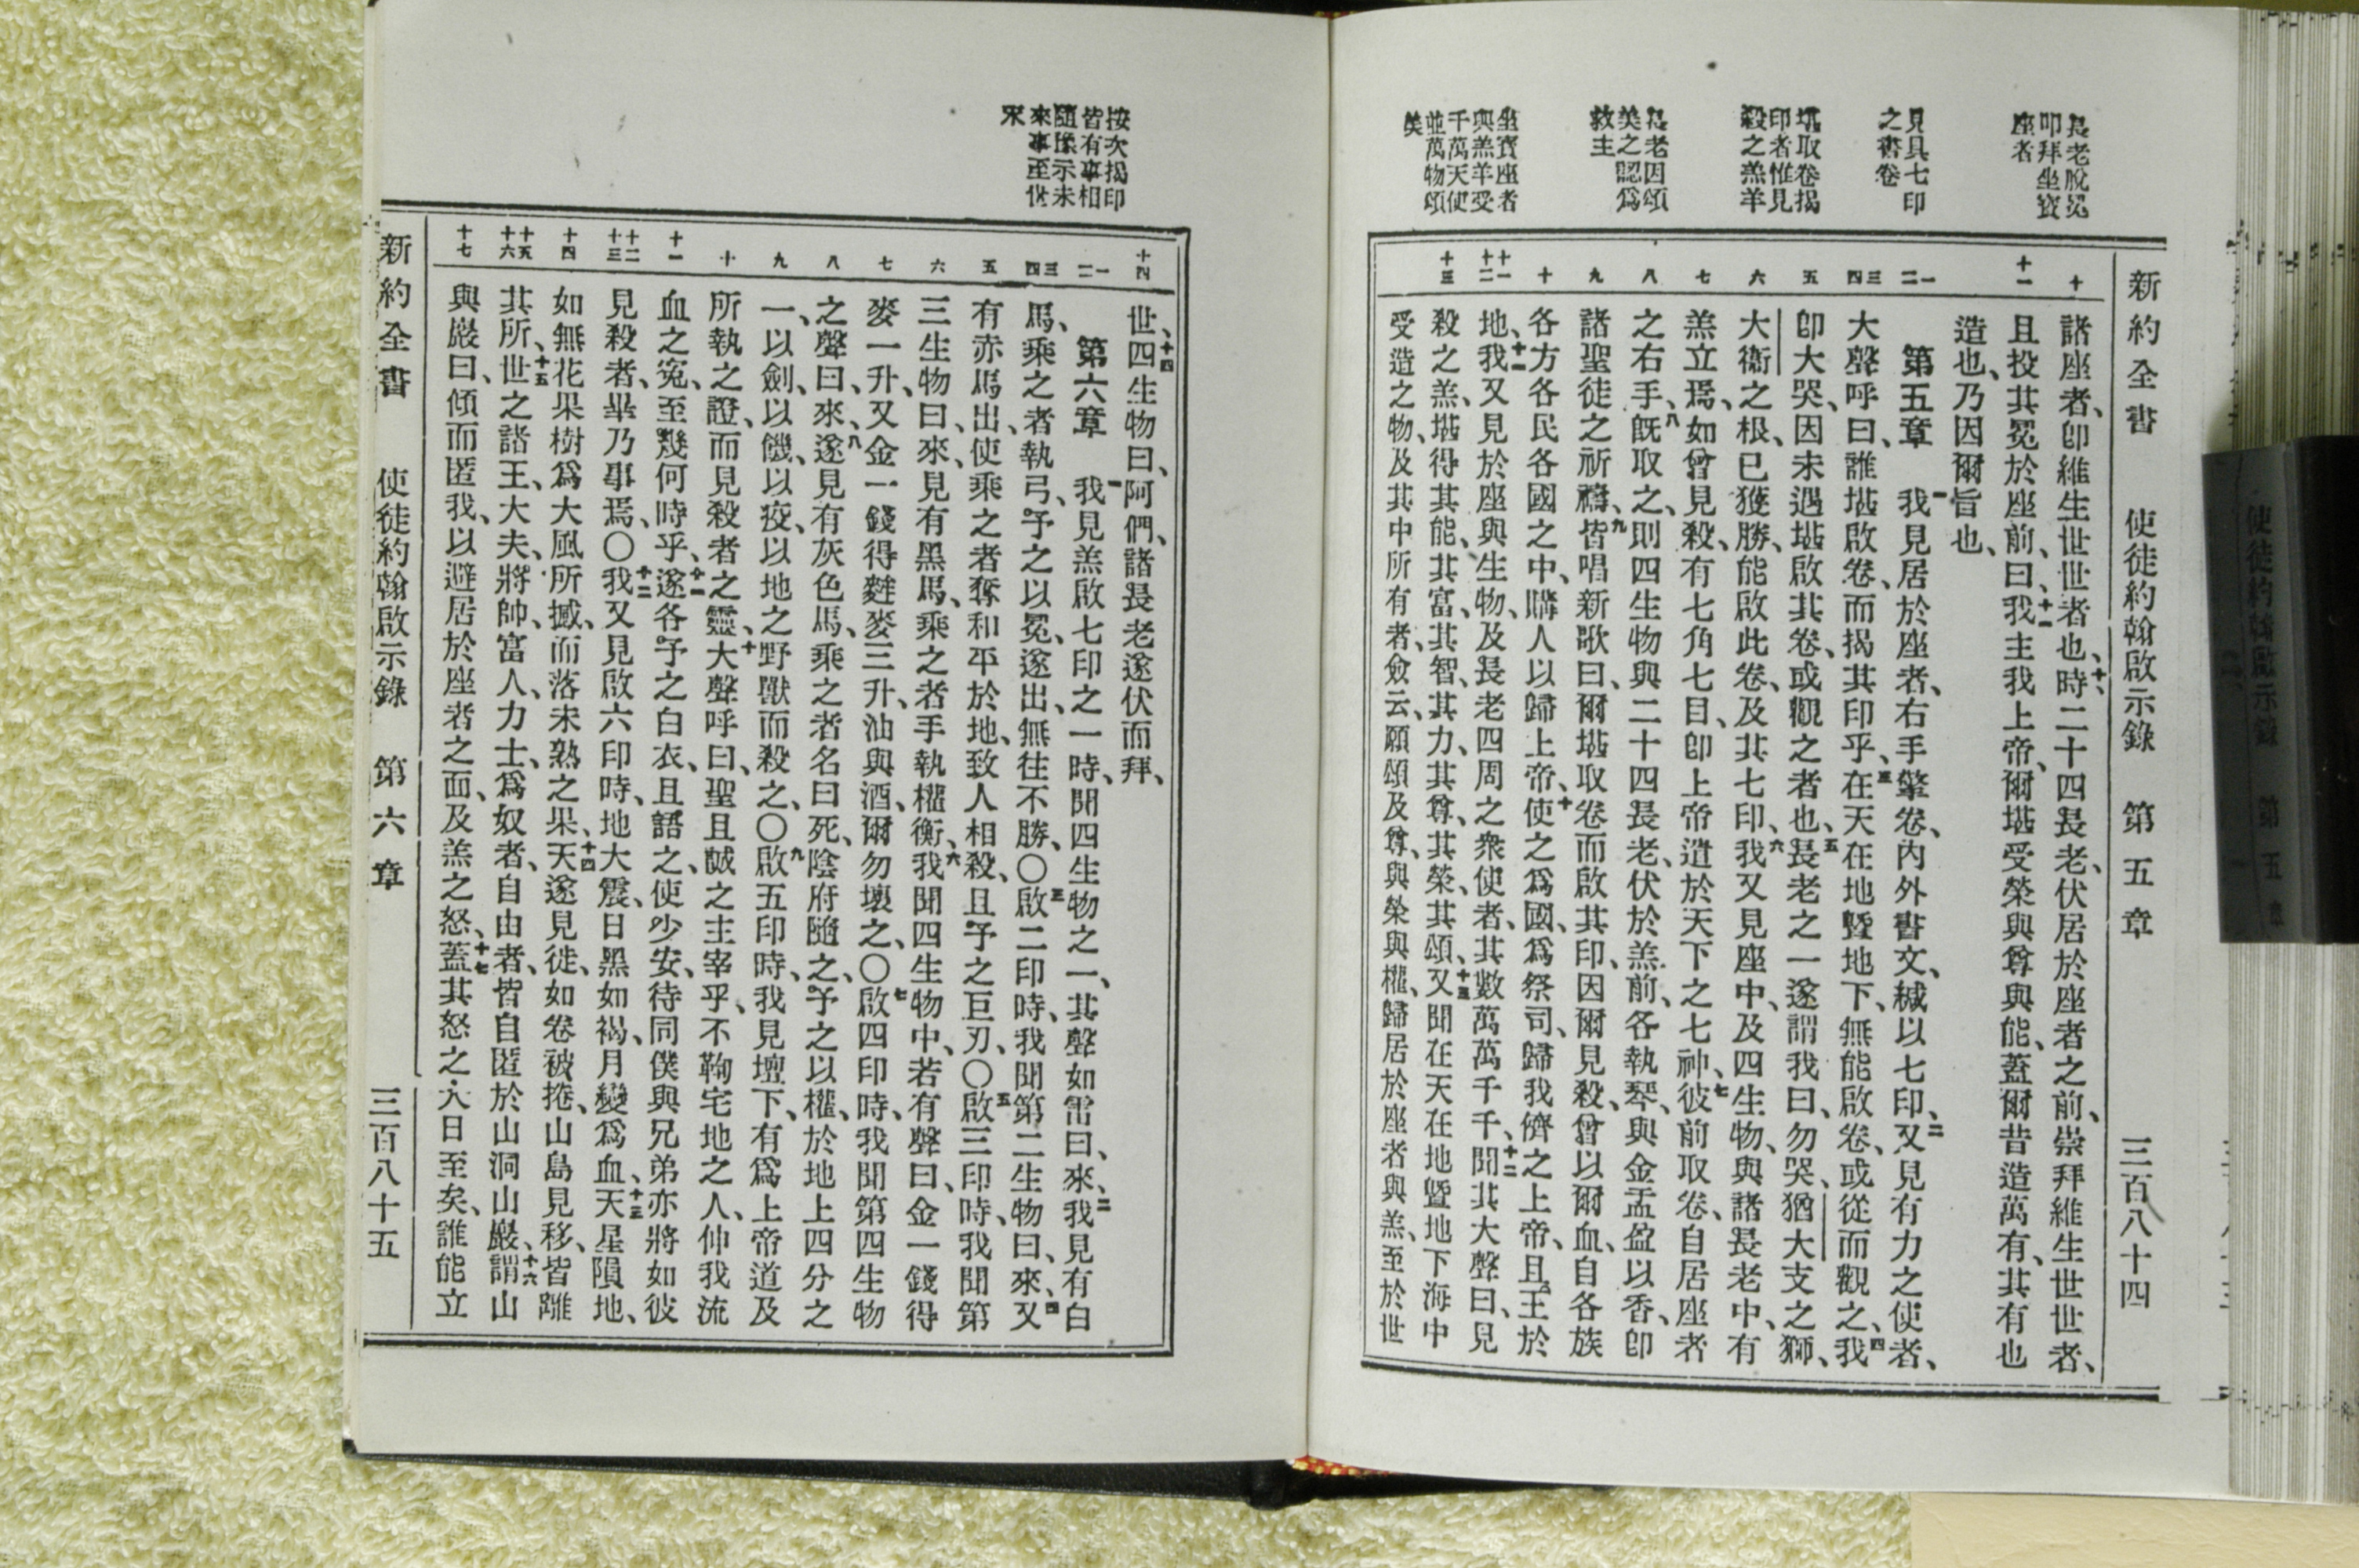 新約全書 使徒約翰啟示錄 第五章 三百八十四
長老脫冕
叩拜坐寶
座者
見具七印
之書卷
堪取卷揭
印者惟見
殺之羔羊
長老因頌
美之認爲
救主
坐寶座者
與羔羊受
千萬天使
並萬物頌
美
十 十一 一 二 三 四 五 六 七 八 九 十 十一 十二 十三
諸座者、卽維生世世者也、十時二十四長老、伏居於座者之前、崇拜維生世世者、
且投其冕於座前、曰、十一我主我上帝、爾堪受榮與尊與能、蓋爾昔造萬有、其有也
造也、乃因爾旨也、
第五章 一我見居於座者、右手擎卷、內外書文、緘以七印、二又見有力之使者、
大聲呼曰、誰堪啟卷、而揭其印乎、三在天在地曁地下、無能啟卷、或從而觀之、四我
卽大哭、因未遇堪啟其卷、或觀之者也、五長老之一遂謂我曰、勿哭、猶大支之獅、
大衞之根、已獲勝、能啟此卷、及其七印、六我又見座中、及四生物、與諸長老中、有
羔立焉、如曾見殺、有七角七目、卽上帝遣於天下之七神、七彼前取卷、自居座者
之右手、八旣取之、則四生物與二十四長老、伏於羔前、各執琴、與金盂盈以香、卽
諸聖徒之祈禱、九皆唱新歌曰、爾堪取卷而啟其印、因爾見殺、曾以爾血、自各族
各方各民各國之中、購人以歸上帝、十使之爲國、爲祭司、歸我儕之上帝、且王於
地、十一我又見於座與生物、及長老四周之衆使者、其數萬萬千千、十二聞其大聲曰、見
殺之羔、堪得其能、其富、其智、其力、其尊、其榮、其頌、十三又聞在天在地曁地下海中
受造之物、及其中所有者、僉云、願頌及尊、與榮與權、歸居於座者與羔、至於世
按次揭印
皆有事相
隨係示未
來事至世
末
十四 一 二 三 四 五 六 七 八 九 十 十一 十二 十三 十四 十五 十六 十七
世、十四四生物曰、阿們、諸長老遂伏而拜、
第六章 一我見羔啟七印之一時、聞四生物之一、其聲如雷曰、來、二我見有白
馬、乘之者執弓、予之以冕、遂出、無往不勝、〇三啟二印時、我聞第二生物曰、來、四又
有赤馬出、使乘之者奪和平於地、致人相殺、且予之巨刃、〇五啟三印時、我聞第
三生物曰、來、見有黑馬、乘之者手執權衡、六我聞四生物中、若有聲曰、金一錢得
麥一升、又金一錢得麰麥三升、油與酒、爾勿壞之、〇七啟四印時、我聞第四生物
之聲曰、來、八遂見有灰色馬、乘之者名曰死、陰府隨之、予之以權、於地上四分之
一、以劍、以饑、以疫、以地之野獸而殺之、〇九啟五印時、我見壇下、有爲上帝道及
所執之證、而見殺者之靈、十大聲呼曰、聖且誠之主宰乎、不鞫宅地之人、伸我流
血之寃、至幾何時乎、十一遂各予之白衣、且語之、使少安、待同僕與兄弟亦將如彼
見殺者、畢乃事焉、〇十二我又見啟六印時、地大震、日黑如褐、月變爲血、十三天星隕地、
如無花果樹爲大風所撼、而落未熟之果、十四天遂見徙、如卷被捲、山島見移、皆離
其所、十五世之諸王、大夫、將帥、富人、力士、爲奴者、自由者、皆自匿於山洞山巖、十六謂山
與巖曰、傾而匿我、以避居於座者之面、及羔之怒、十七蓋其怒之大日至矣、誰能立
新約全書 使徒約翰啟示錄 第六章 三百八十五